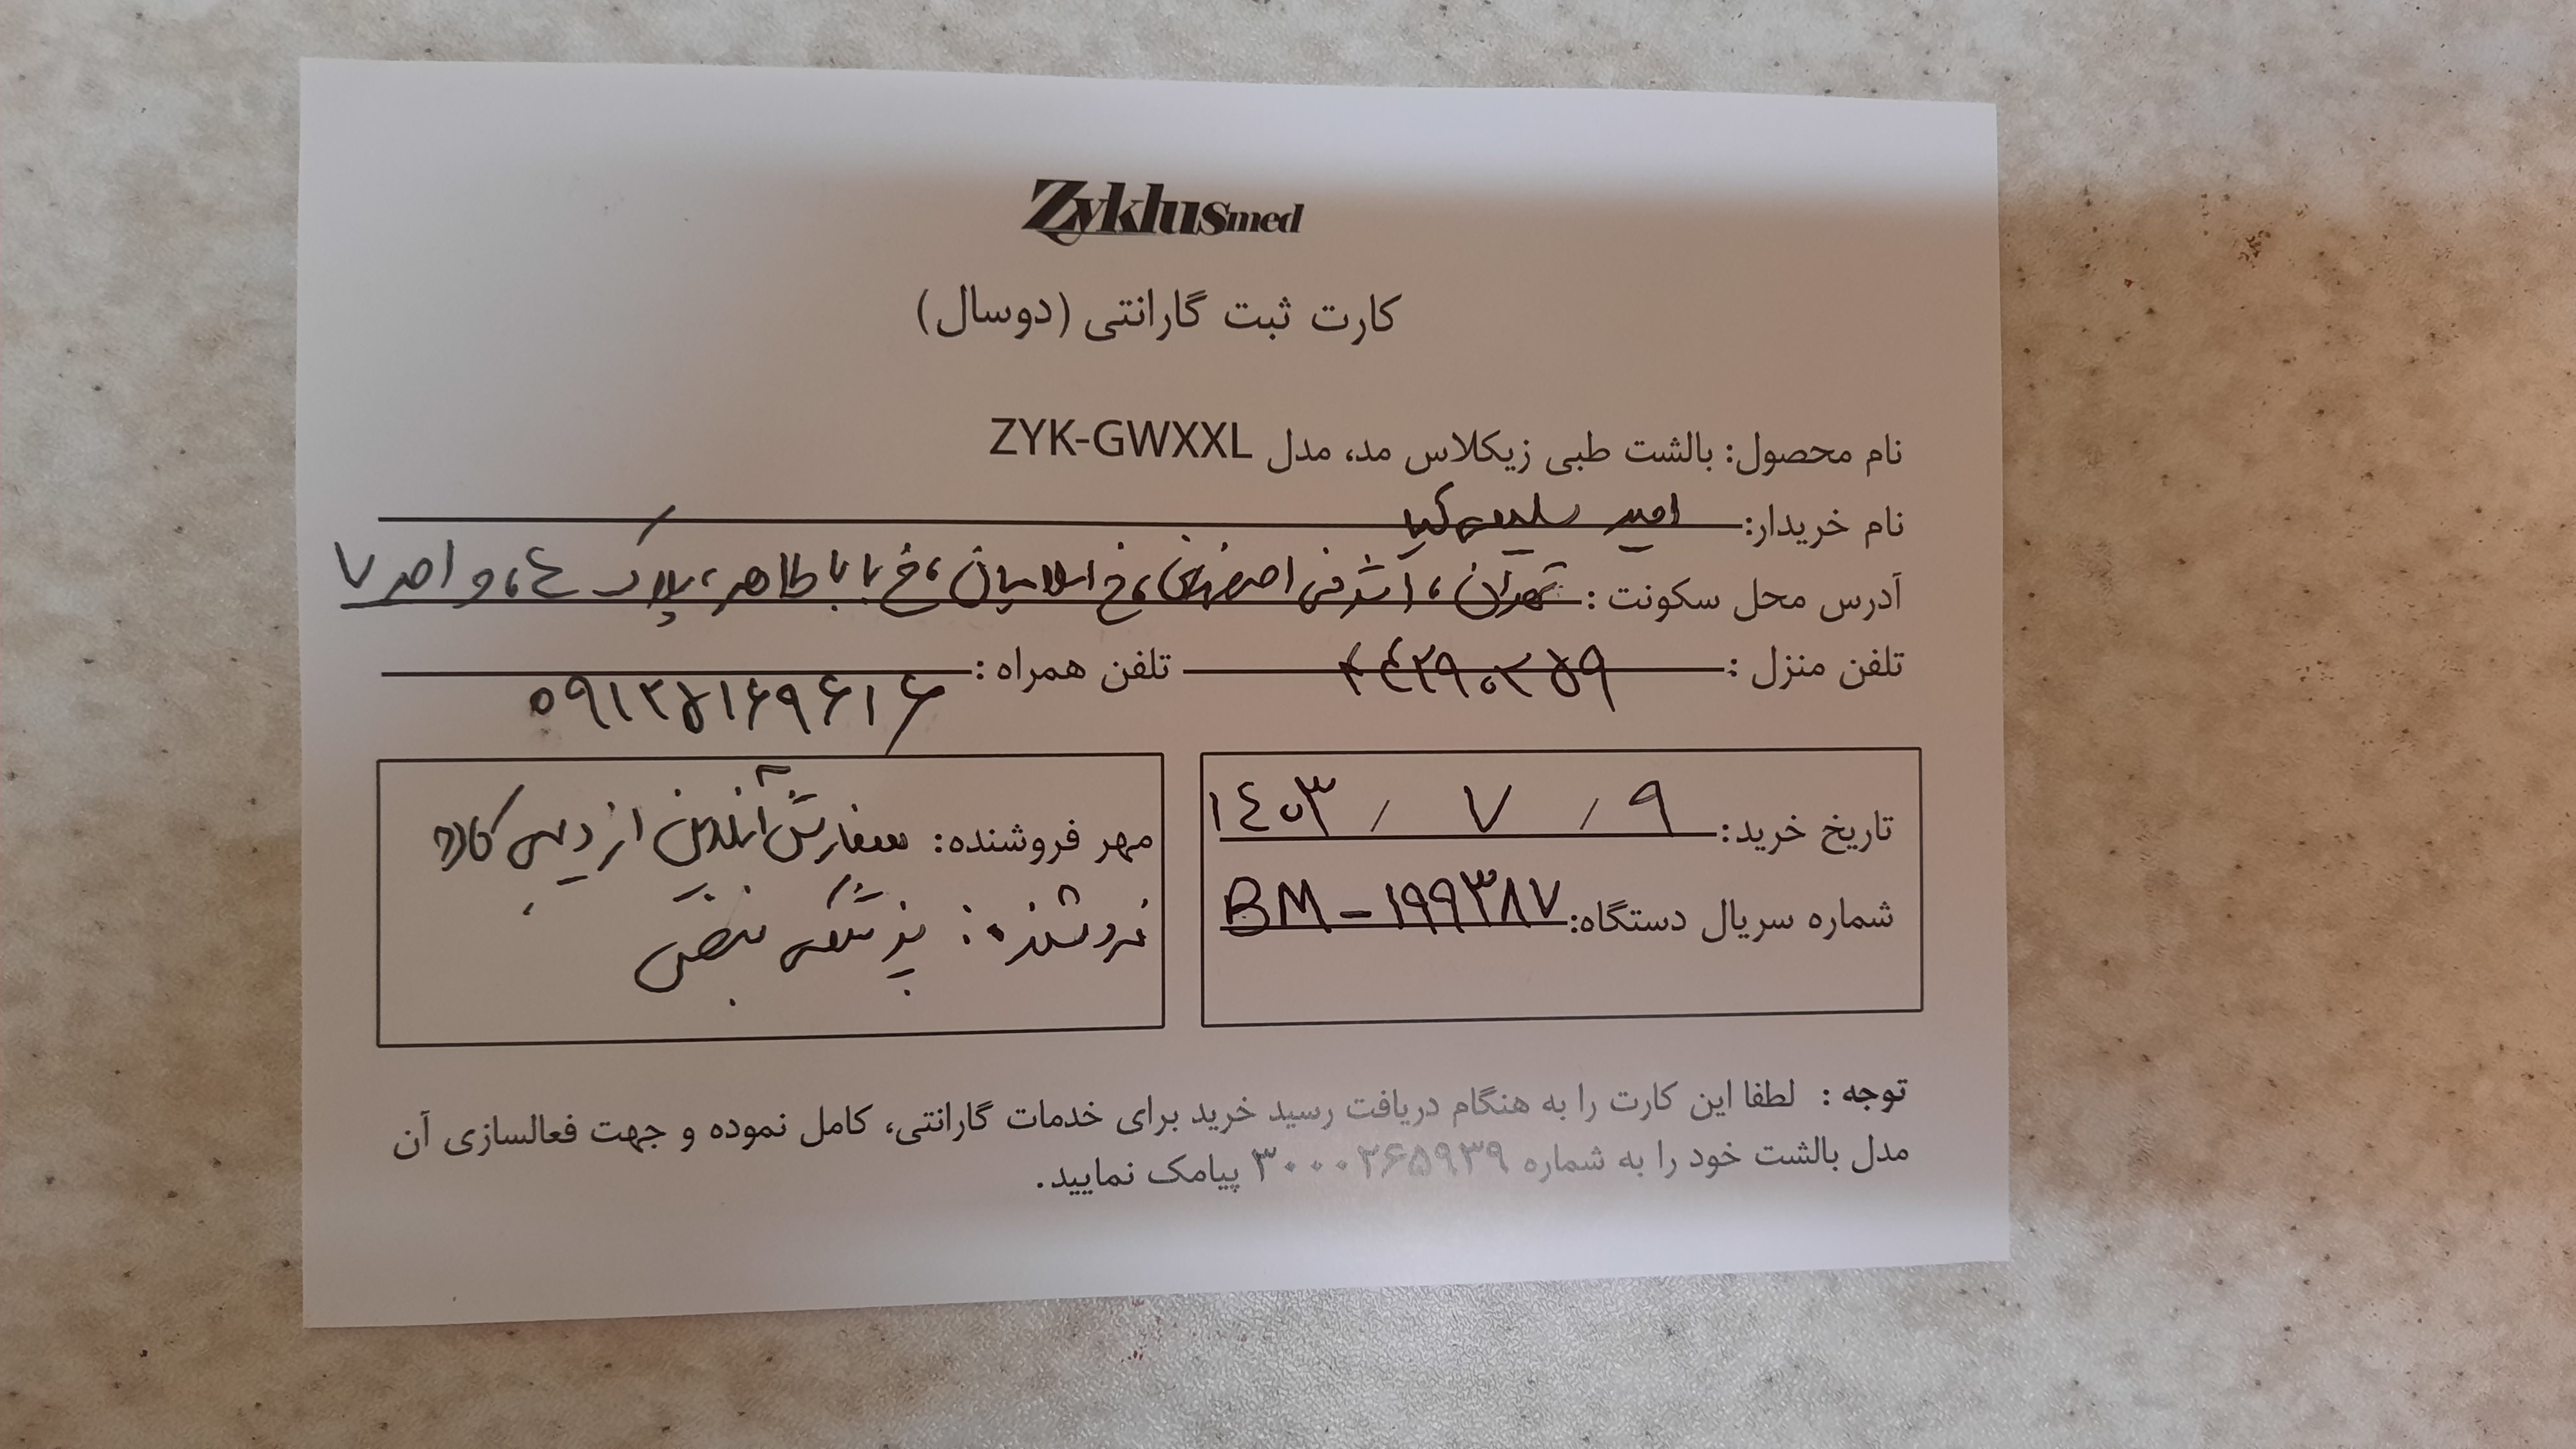 Zyklusmed
کارت ثبت گارانتی (دوسال)
نام محصول: بالشت طبی زیکلاس مد، مدل ZYK-GWXXL
نام خریدار: امیر سلیمی کیا
آدرس محل سکونت: تهران، اشرفی اصفهانی، خ اسلامیان، خ باباطاهر، پلاک ٤، واحد ۷
تلفن منزل: ۴٤۲۹۰۲۵۹ تلفن همراه: ۰۹۱۲۵۱۶۹۶۱۶
تاریخ خرید: ۹ / ۷ / ۱٤۰۳
شماره سریال دستگاه: BM - ۱۹۹۳۸۷
مهر فروشنده: سفارش آنلاین از دیجی کالا
فروشنده: پزشکی نبض
توجه : لطفا این کارت را به هنگام دریافت رسید خرید برای خدمات گارانتی، کامل نموده و جهت فعالسازی آن
مدل بالشت خود را به شماره ۳۰۰۰۲۶۵۹۳۹ پیامک نمایید.